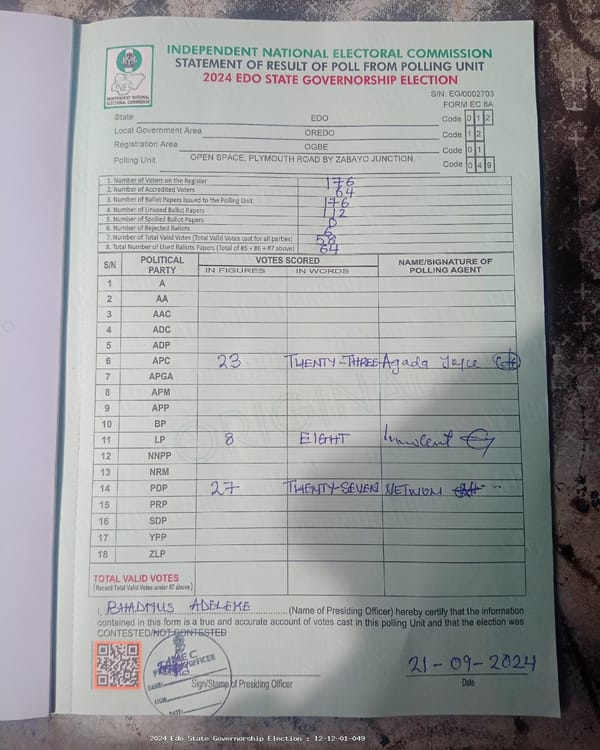 INEC
INDEPENDENT NATIONAL
ELECTORAL COMMISSION
INDEPENDENT NATIONAL ELECTORAL COMMISSION
STATEMENT OF RESULT OF POLL FROM POLLING UNIT
2024 EDO STATE GOVERNORSHIP ELECTION
S/N: EG/0002703
FORM EC 8A
State EDO Code 0 1 2
Local Government Area OREDO Code 1 2
Registration Area OGBE Code 0 1
Polling Unit OPEN SPACE, PLYMOUTH ROAD BY ZABAYO JUNCTION. Code 0 4 9
1. Number of Voters on the Register 176
2. Number of Accredited Voters 64
3. Number of Ballot Papers Issued to the Polling Unit 176
4. Number of Unused Ballot Papers 112
5. Number of Spoiled Ballot Papers 0
6. Number of Rejected Ballots 6
7. Number of Total Valid Votes (Total Valid Votes cast for all parties) 58
8. Total Number of Used Ballots Papers (Total of #5 + #6 + #7 above) 64
S/N POLITICAL PARTY VOTES SCORED NAME/SIGNATURE OF POLLING AGENT
IN FIGURES IN WORDS
1 A
2 AA
3 AAC
4 ADC
5 ADP
6 APC 23 TWENTY-THREE Agada Joyce
7 APGA
8 APM
9 APP
10 BP
11 LP 8 EIGHT Innocent
12 NNPP
13 NRM
14 PDP 27 TWENTY-SEVEN
15 PRP
16 SDP
17 YPP
18 ZLP
TOTAL VALID VOTES
(Record Total Valid Votes under #7 above)
I, BHADMUS ADELEKE (Name of Presiding Officer) hereby certify that the information
contained in this form is a true and accurate account of votes cast in this polling Unit and that the election was
CONTESTED/NOT CONTESTED
INEC
PRESIDING OFFICER
NAME:
SIGN:
DATE:
21-09-2024
Sign/Stamp of Presiding Officer
Date
2024 Edo State Governorship Election : 12-12-01-049